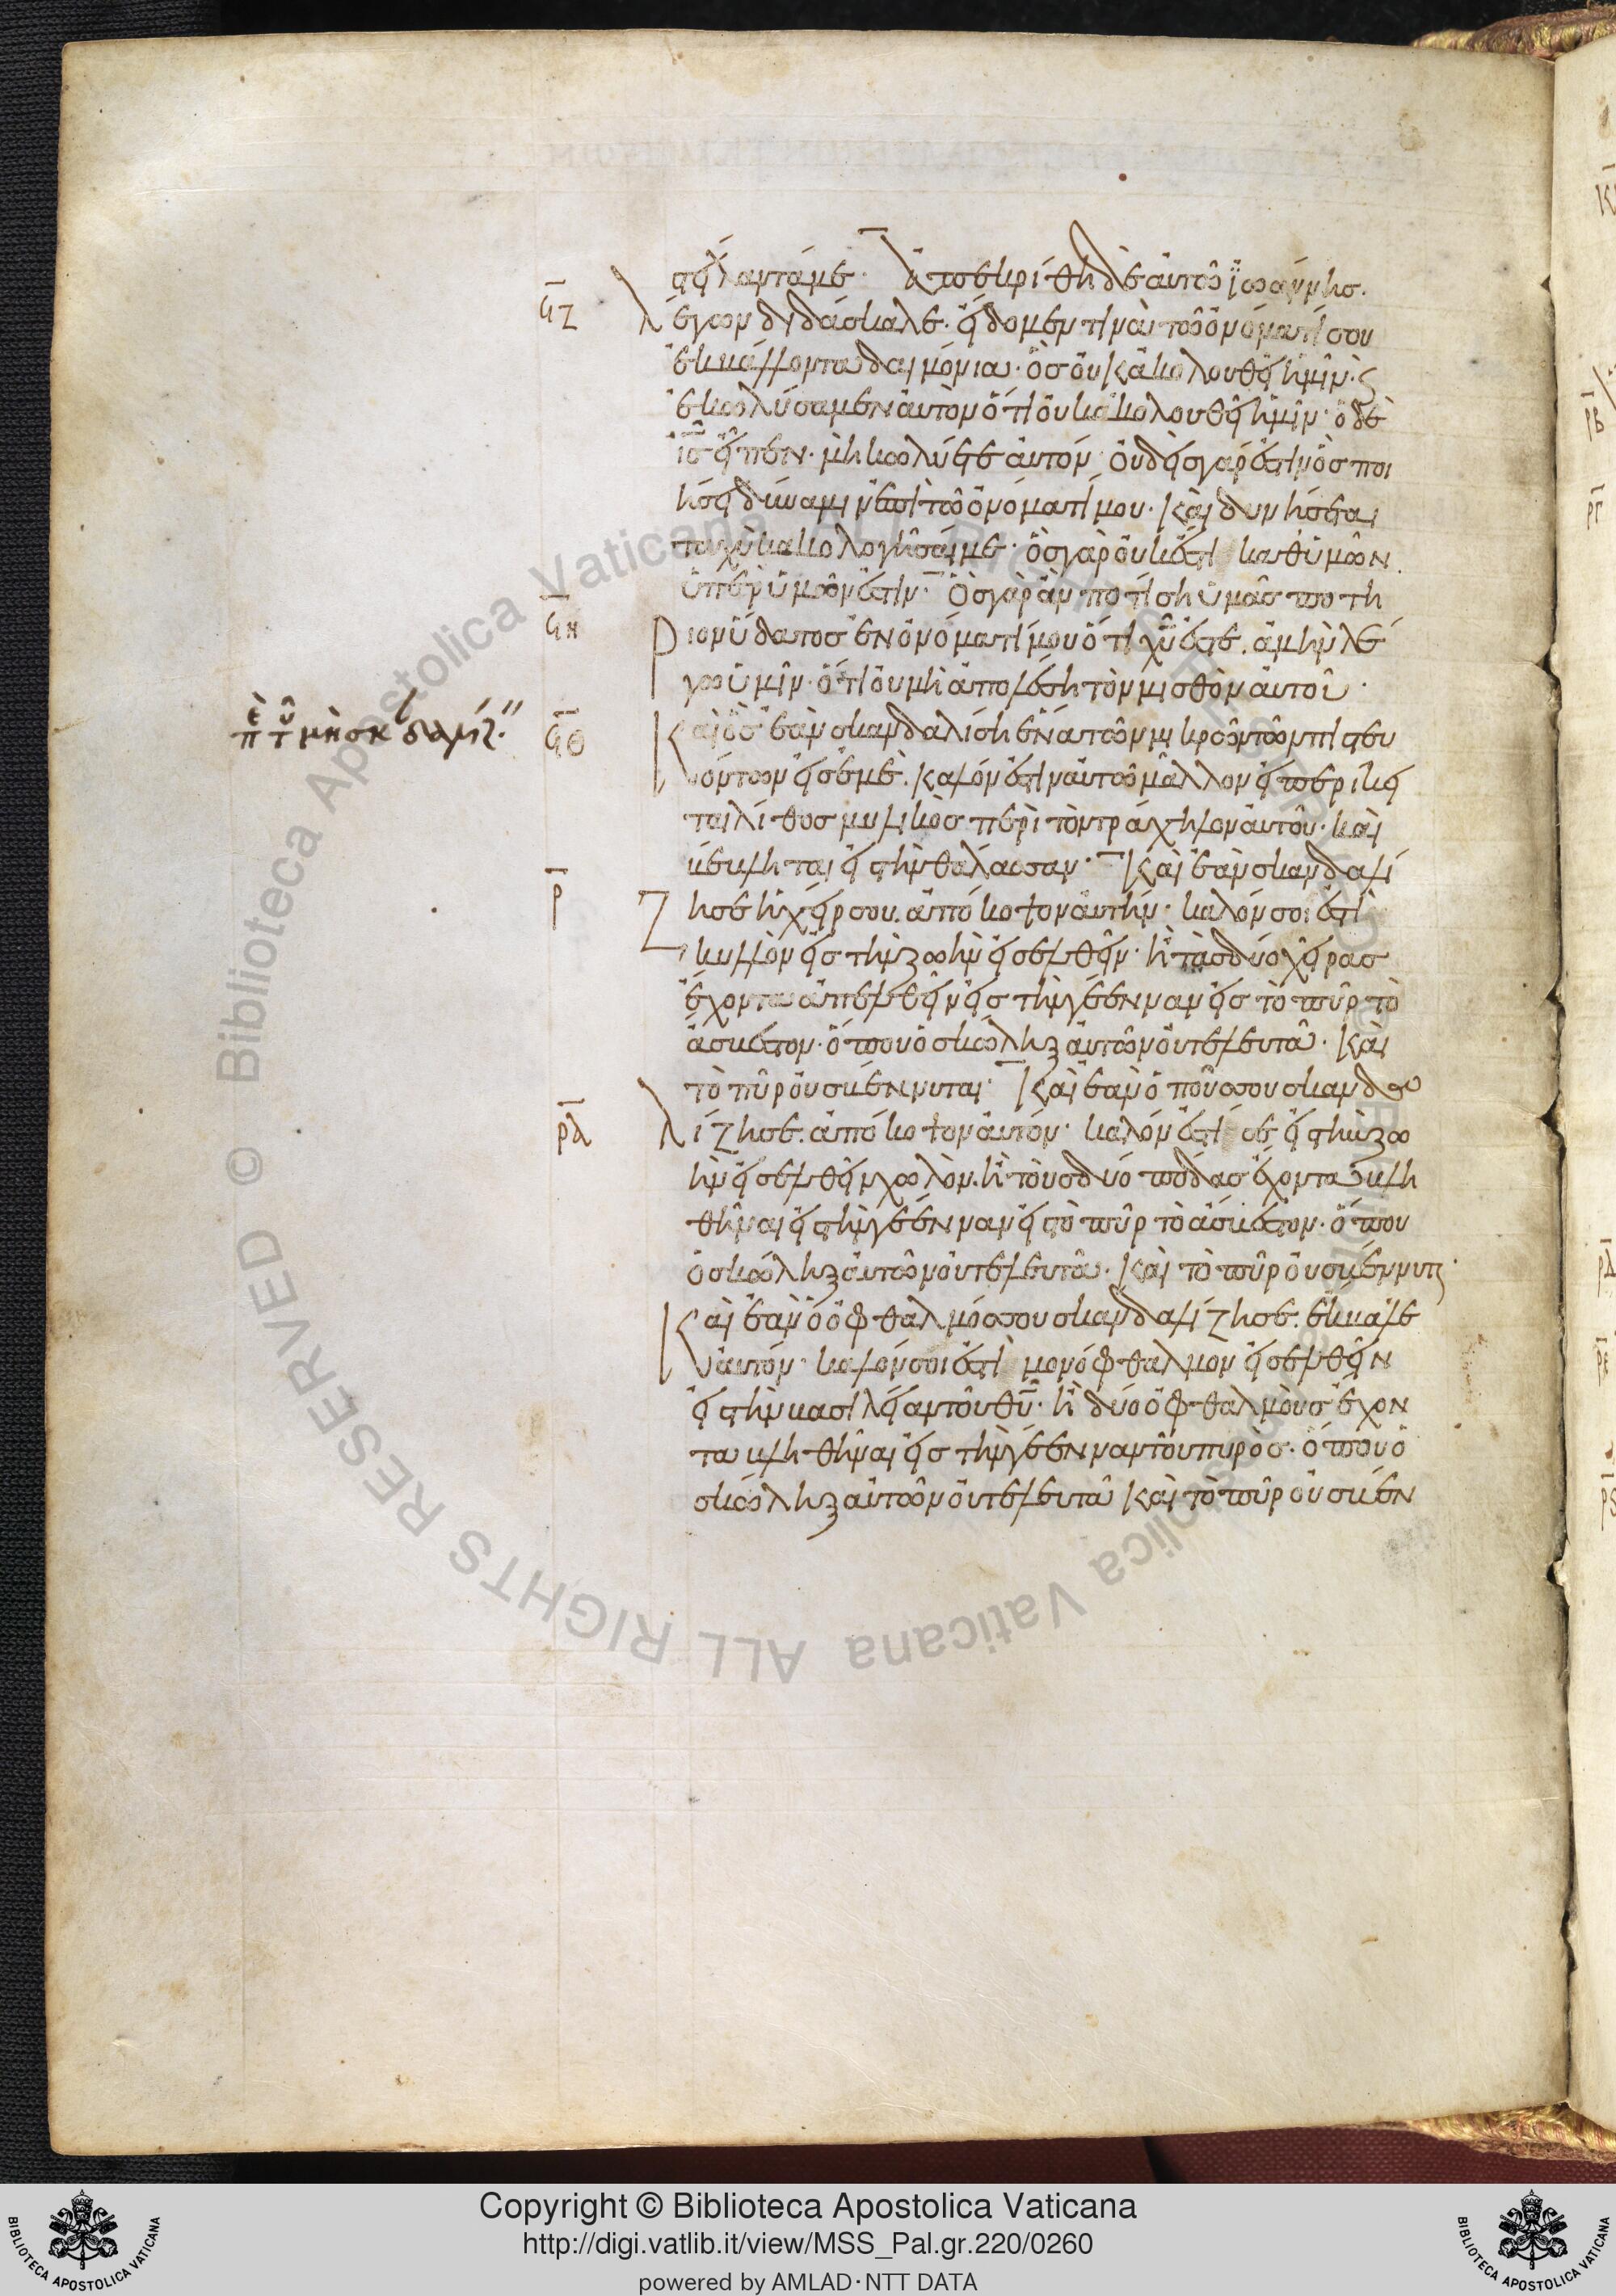 στείλαντά με· Ἀπεκρίθη δὲ αὐτῷ ϊωάννησ·
ϟζ λέγων διδάσκαλε· εἴδομεν τινὰ τῶ ὀνόματί σου
ἐκβάλλοντα δαιμόνια· ὃσ οὐκ ἀκολουθεῖ ἡμῖν· ϛ
ἐκωλύσαμεν αὐτὸν ὅτι οὐκ ἀκολουθεῖ ἡμῖν· ὁ δὲ
ισ εἶπεν· μὴ κωλύετε αὐτόν· οὐδεὶσ γάρ ἐστιν ὃσ ποι
ήσει δύναμιν ἐπὶ τῶ ὀνόματί μου· καὶ δυνήσεται
ταχὺ κακολογῆσαί με· ὃσ γὰρ οὐκ ἔστι καθ ὑμῶν
ὑπὲρ ὑμῶν ἐστιν· Ὃσ γὰρ ἂν ποτίση ὑμᾶσ ποτή
ϟη ριον ὕδατοσ ἐν ὀνόματί μου ὅτι χυ ἐστε. ἀμὴν λέ
γω ὑμῖν· ὅτι οὐ μὴ ἀπολέση τὸν μισθὸν αὐτοῦ·
ϟθ Καὶ ὃσ ἐὰν σκανδαλίση ἕνα τῶν μικρῶν τῶν πιστευ
όντων εἰσ ἐμὲ. καλόν ἐστιν αὐτῶ μᾶλλον εἰ περίκει
ται λίθοσ μυλικὸσ περὶ τὸν τράχηλον αὐτοῦ· καὶ
βέβληται εἰσ τὴν θάλασσαν· Καὶ ἐὰν σκανδαλί
ρ ζη σε ἡ χείρ σου. ἀπόκοψον αὐτήν· καλόν σοι ἐστὶ
κυλλὸν εἰσ τὴν ζωὴν εἰσελθεῖν· ἢ τὰσ δύο χεῖρασ
ἔχοντα ἀπελθεῖν εἰσ τὴν γέενναν εἰσ τὸ πῦρ τὸ
ἄσβεστον· ὅπου ὁ σκώληξ αὐτῶν οὐ τελευτᾶ· καὶ
τὸ πῦρ οὐ σβέννυται· Καὶ ἐὰν ὁ πούσ σου σκανδα
ρα λίζη σε. ἀπόκοψον αὐτόν· καλόν ἐστί σε εἰσ τὴν ζω
ὴν εἰσελθεῖν χωλὸν. ἢ τοὺσ δύο πόδασ ἔχοντα βλη
θῆναι εἰσ τὴν γέενναν εἰσ τὸ πῦρ τὸ ἄσβεστον· ὅπου
ὁ σκώληξ αὐτῶν οὐ τελευτᾶ· καὶ τὸ πῦρ οὐ σβέννυται·
Καὶ ἐὰν ὁ ὀφθαλμόσ σου σκανδαλίζη σε. ἔκβαλε
αὐτόν· καλόν σοι ἐστὶ μονόφθαλμον εἰσελθεῖν
εἰσ τὴν βασιλείαν τοῦ θυ· ἢ δύο ὀφθαλμοὺσ ἔχον
τα βληθῆναι εἰσ τὴν γέενναν τοῦ πυρόσ· ὅπου ὁ
σκώληξ αὐτῶν οὐ τελευτᾶ καὶ τὸ πῦρ οὐ σβέν
Copyright © Biblioteca Apostolica Vaticana
http://digi.vatlib.it/view/MSS_Pal.gr.220/0260
powered by AMLAD·NTT DATA